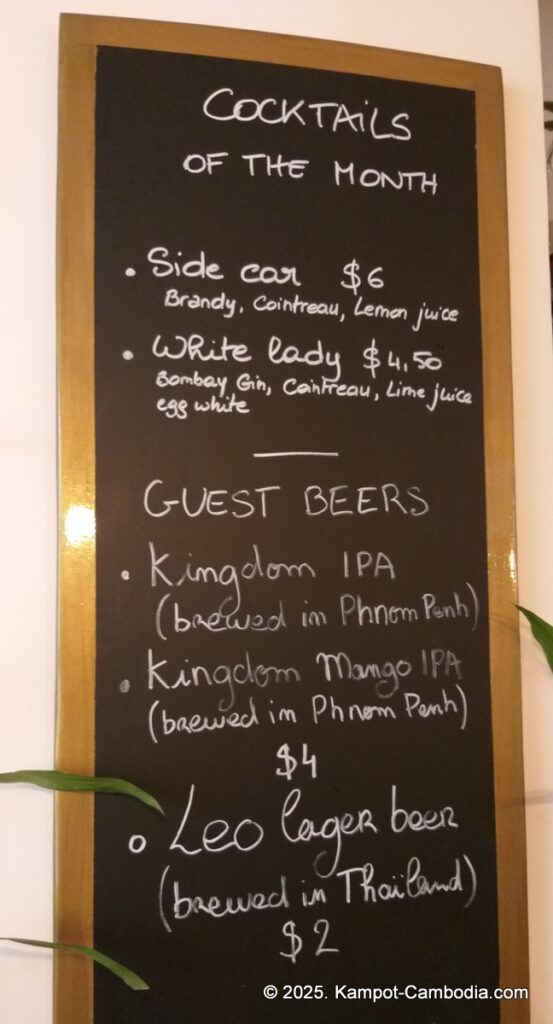 COCKTAiLS
OF THE MONTH
• Side car $6
Brandy, Cointreau, Lemon juice
• White lady $4,50
Bombay Gin, Cointreau, Lime juice
egg white
GUEST BEERS
• Kingdom IPA
(brewed in Phnom Penh)
• Kingdom Mango IPA
(brewed in Phnom Penh)
$4
• Leo lager beer
(brewed in Thaïland)
$2
© 2025. Kampot-Cambodia.com